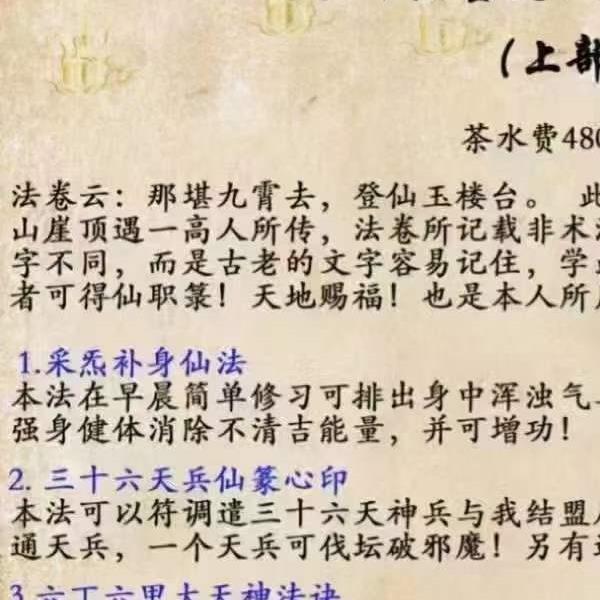 （上部
茶水费480
法卷云：那堪九霄去，登仙玉楼台。 此
山崖顶遇一高人所传，法卷所记载非术法
字不同，而是古老的文字容易记住，学
者可得仙职箓！天地赐福！也是本人所
1.采炁补身仙法
本法在早晨简单修习可排出身中浑浊气
强身健体消除不清吉能量，并可增功！
2. 三十六天兵仙篆心印
本法可以符调遣三十六天神兵与我结盟
通天兵，一个天兵可伐坛破邪魔！另有
3.六丁六甲大天神法诀